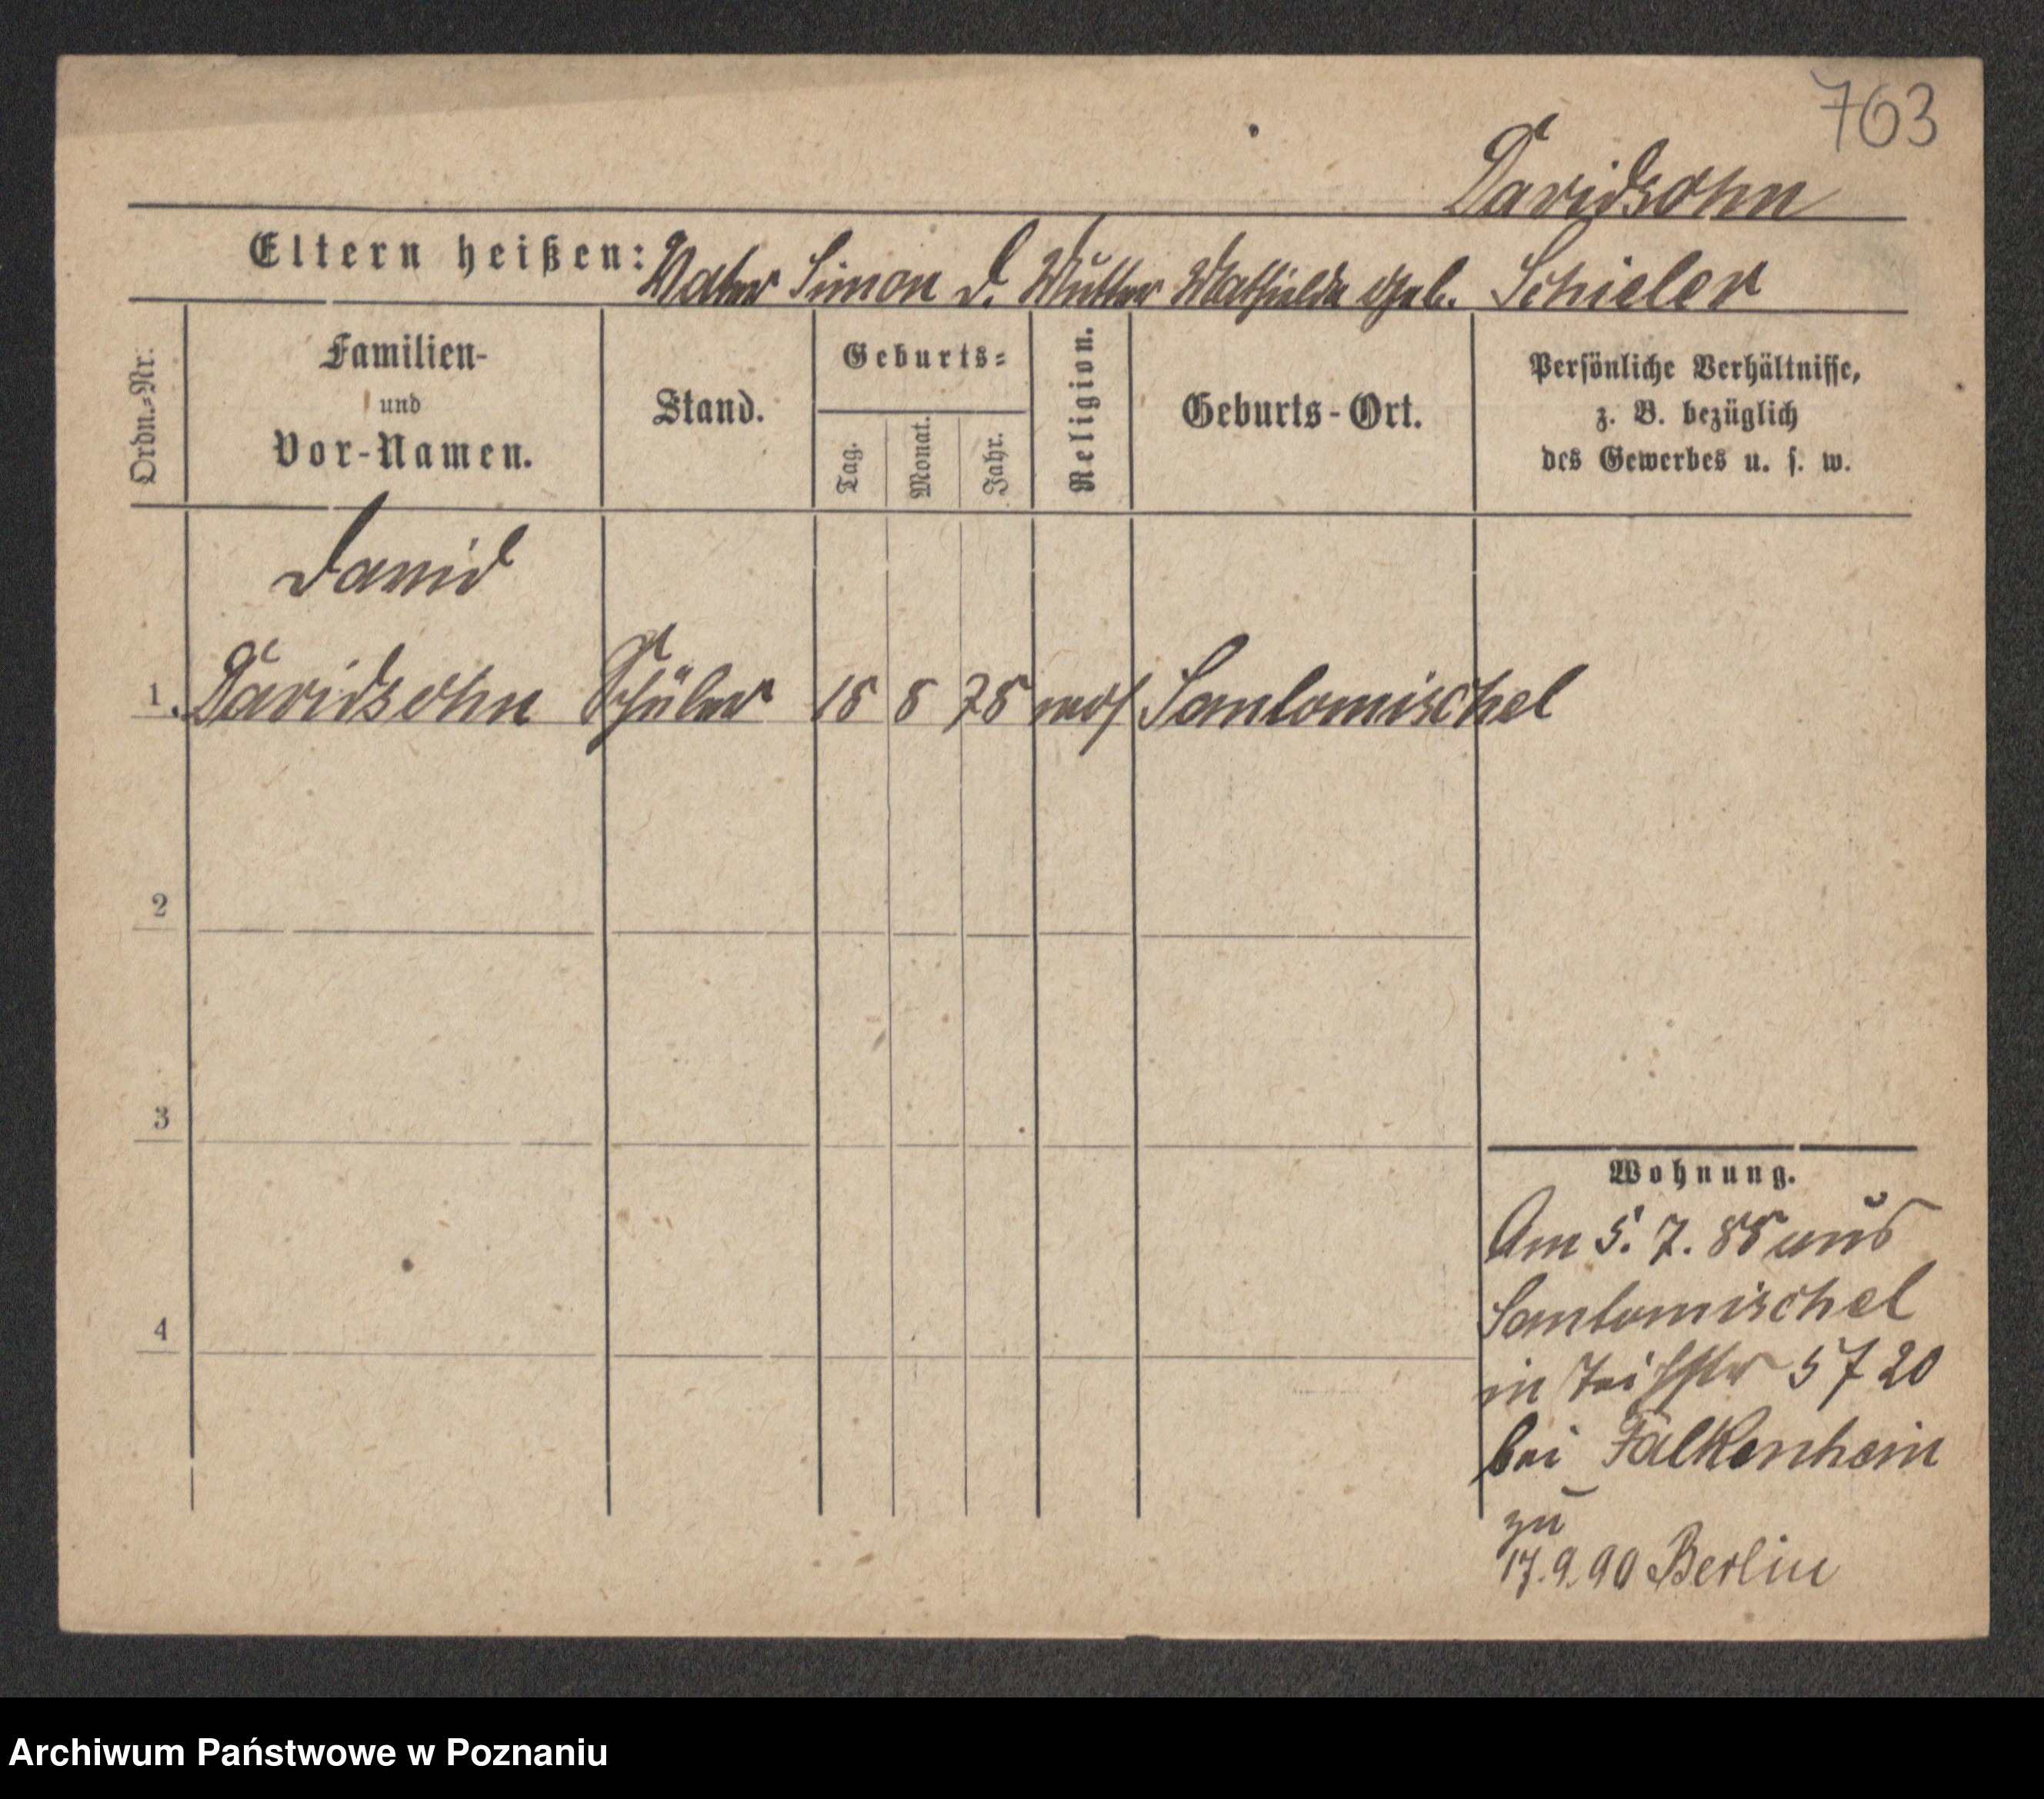 763
Davidsohn
Eltern heißen: Vater Simon D. Mutter Mathilde geb. Schieler
Ordn.=Nr.
Familien-
und
Vor-Namen.
Stand.
Geburts=
Tag.
Monat.
Jahr.
Religion.
Geburts-Ort.
Persönliche Verhältnisse,
z. B. bezüglich
des Gewerbes u. s. w.
David
1. Davidsohn Schüler 18 8 78 mos Santomischel
2
3
4
Wohnung.
Am 5. 7. 88 aus
Santomischel
in 57 20
bei Falkenhein
zu
17.9.90 Berlin
Archiwum Państwowe w Poznaniu